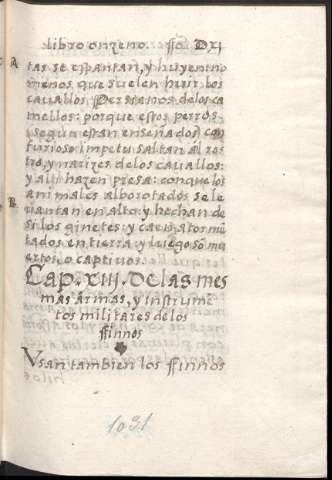 libro onzeno. ffo. DXI
A
tas se espantan, y huyen no
menos que suelen huir los
cauallos Persianos de los ca
mellos: porque estos perros
segun estan enseñados con
furioso impetu saltan al ros
tro, y narizes de los cauallos:
y alli hazen presa: con que los
B
animales alborotados se le
uantan en alto y hechan de
si los ginetes y caen atormẽ
tados en tierra y luego sõ mu
ertos, o captiuos.
Cap. XIII. De las mes
mas armas, y instrumẽ
tos militares de los
ffinnos
Vsan tambien los ffinnos
1091